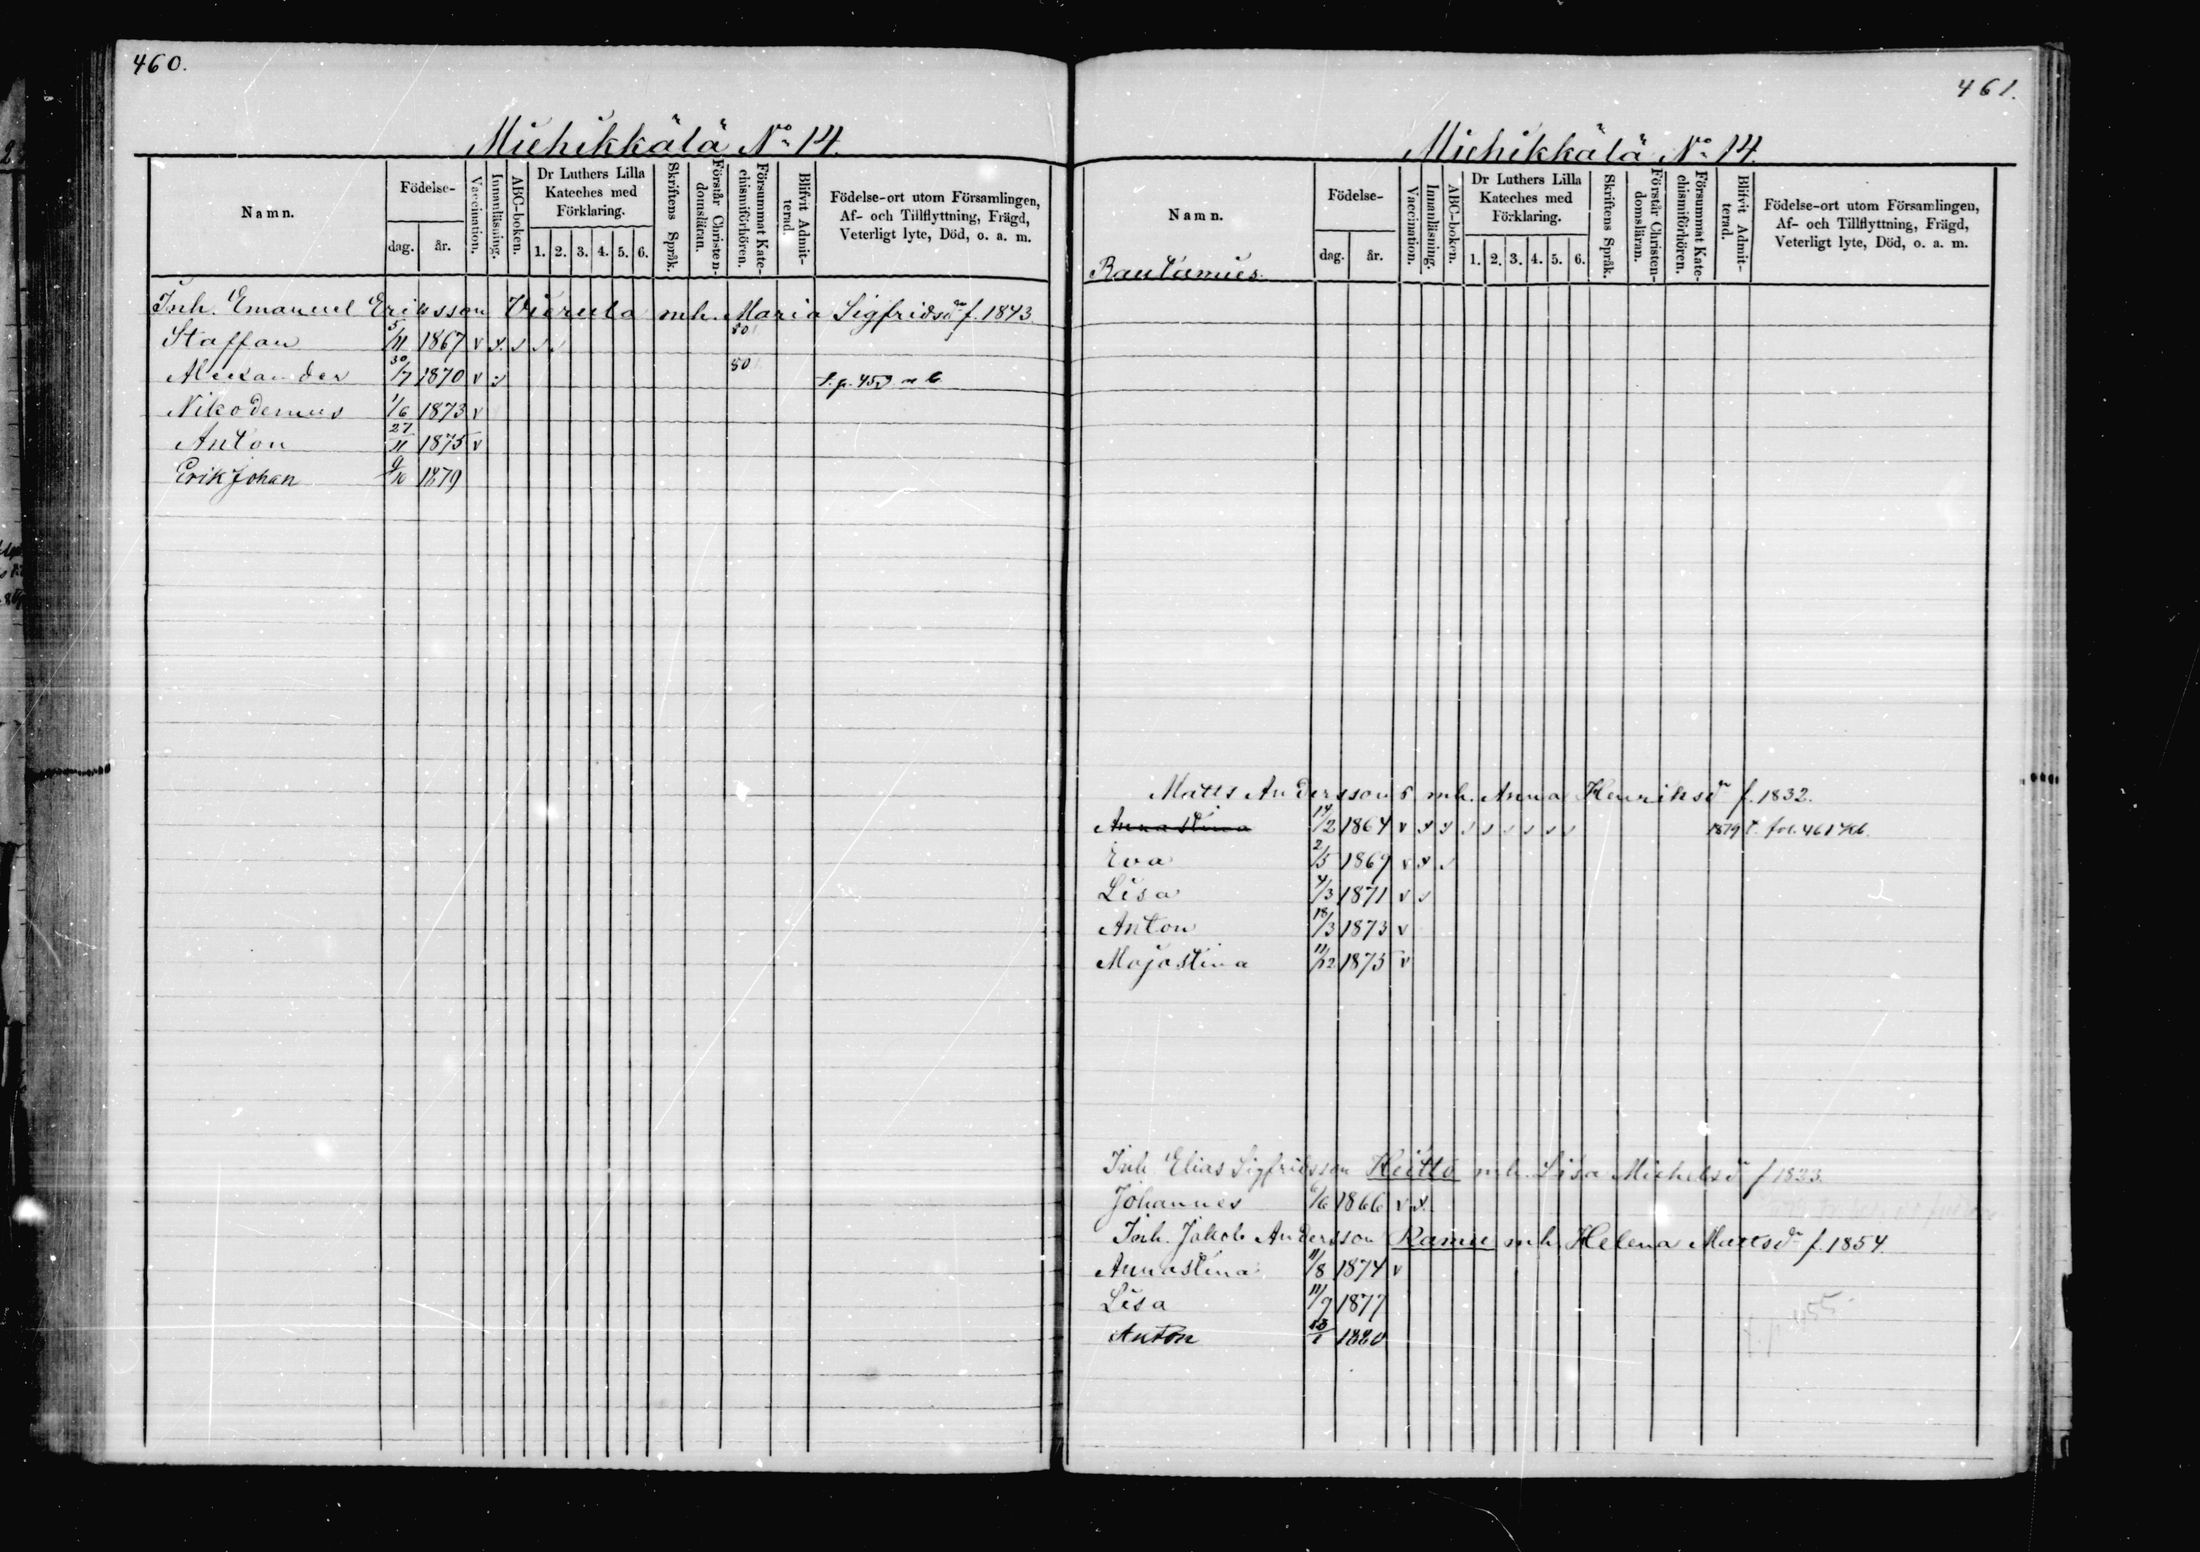 460.
Miehikkälä No 14.
Namn.
Födelse-
dag.
år.
Vaccination.
Innanläsning.
ABC-boken.
Dr Luthers Lilla Kateches med Förklaring.
1. 2. 3. 4. 5. 6.
Skriftens Språk.
Förstår Christendomsläran.
Försummat Katechismiförhören.
Blifvit Admitterad.
Födelse-ort utom Församlingen,
Af- och Tillflyttning, Frägd,
Veterligt lyte, Död, o. a. m.
Inh. Emanuel Eriksson mh. Maria Sigfridsdr f. 1843.
Staffan 5/11 1867 v x 80
Alexander 30/7 1870 v 80
Nikodemus 1/6 1873 v
Anton 27/11 1875 v
Erik Johan 9/10 1879
461.
Miehikkälä No 14.
Namn.
Rautamies.
Födelse-
dag.
år.
Vaccination.
Innanläsning.
ABC-boken.
Dr Luthers Lilla Kateches med Förklaring.
1. 2. 3. 4. 5. 6.
Skriftens Språk.
Förstår Christendomsläran.
Försummat Katechismiförhören.
Blifvit Admitterad.
Födelse-ort utom Församlingen,
Af- och Tillflyttning, Frägd,
Veterligt lyte, Död, o. a. m.
Matts Andersson mh. Anna Henriksdr f. 1832.
Annastina 14/2 1864 v x x 1879
Eva 2/5 1869 v x
Lisa 4/3 1871 v
Anton 18/3 1873 v
Majastina 11/12 1875 v
Inh. Elias Sigfridsson mh. Lisa Michelsdr f 1823.
Johannes 1/6 1866 v x
Inh. Jakob Andersson mh. Helena Mattsdr f. 1854
Annastina 11/8 1874 v
Lisa 11/9 1877
Anton 13/1 1880